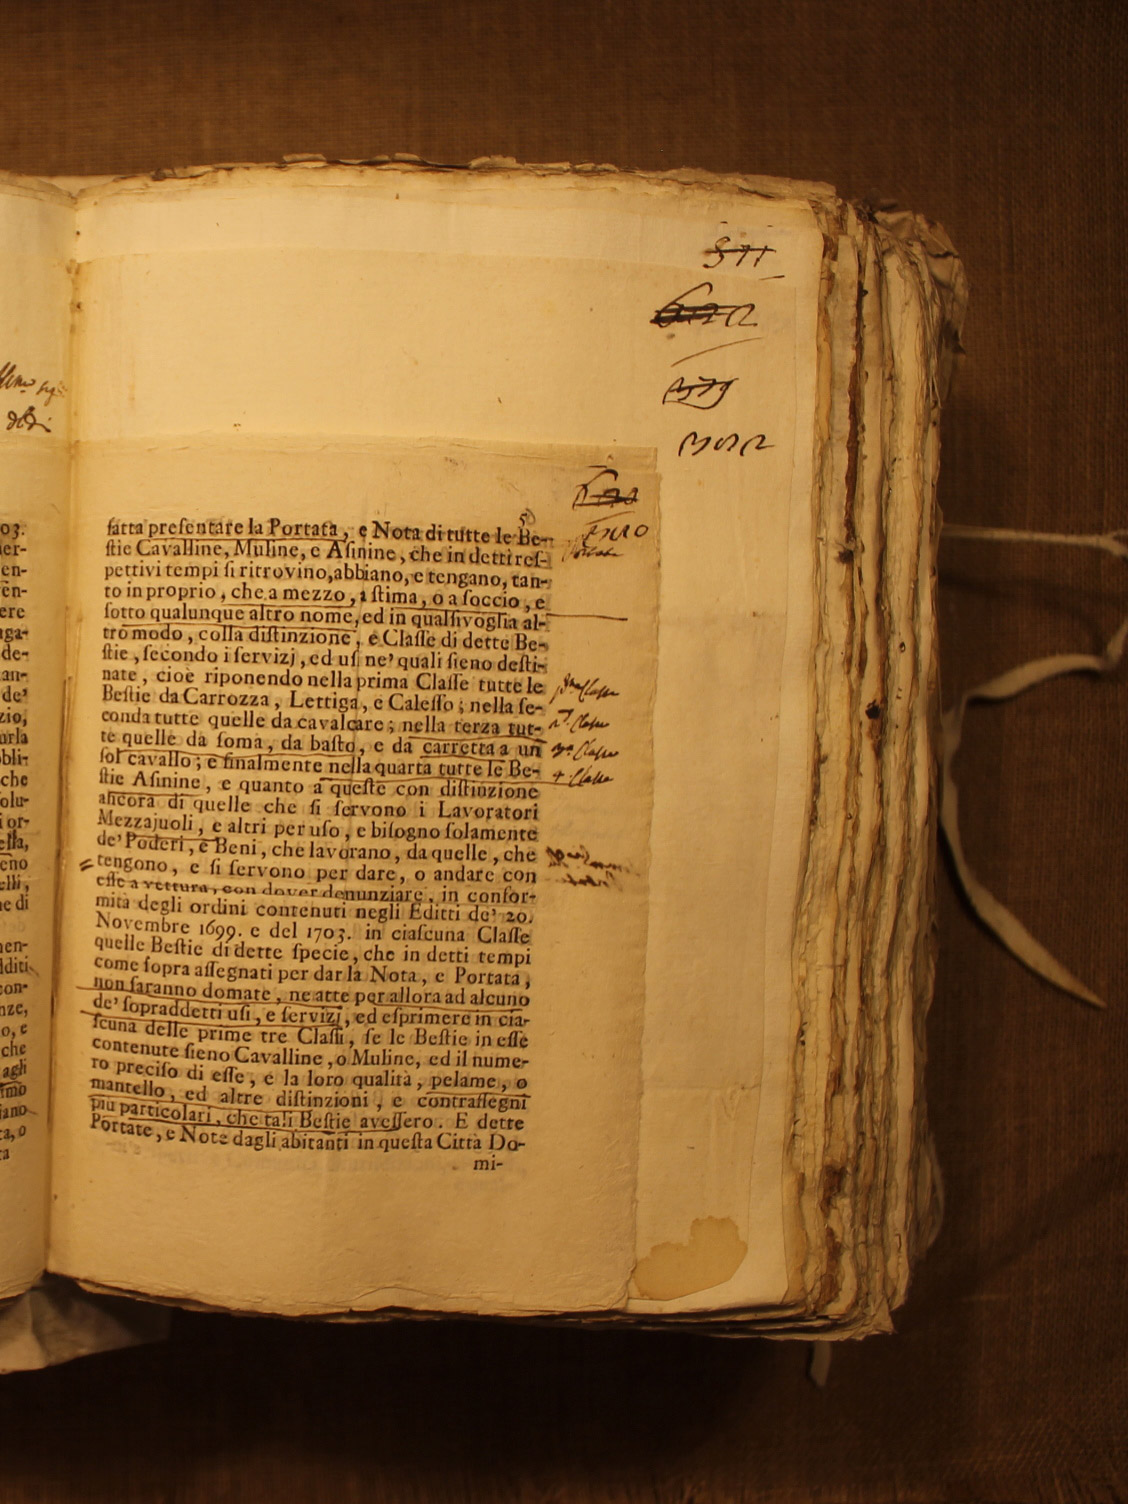 5
fatta presentare la Portata, e Nota di tutte le Be-
stie Cavalline, Muline, e Asinine, che in detti res-
pettivi tempi si ritrovino, abbiano, e tengano, tan-
to in proprio, che a mezzo, a stima, o a soccio, e
sotto qualunque altro nome, ed in qualsivoglia al-
tro modo, colla distinzione, e Classe di dette Be-
stie, secondo i servizj, ed usi ne' quali sieno desti-
nate, cioè riponendo nella prima Classe tutte le
Bestie da Carrozza, Lettiga, e Calesso; nella se-
conda tutte quelle da cavalcare; nella terza tut-
te quelle da soma, da basto, e da carretta a un
sol cavallo; e finalmente nella quarta tutte le Be-
stie Asinine, e quanto a queste con distinzione
ancora di quelle che si servono i Lavoratori
Mezzajuoli, e altri per uso, e bisogno solamente
de' Poderi, e Beni, che lavorano, da quelle, che
tengono, e si servono per dare, o andare con
esse a vettura, con dover denunziare, in confor-
mità degli ordini contenuti negli Editti de' 20.
Novembre 1699. e del 1703. in ciascuna Classe
quelle Bestie di dette specie, che in detti tempi
come sopra assegnati per dar la Nota, e Portata,
non saranno domate, ne atte per allora ad alcuno
de' sopraddetti usi, e servizj, ed esprimere in cia-
scuna delle prime tre Classi, se le Bestie in esse
contenute sieno Cavalline, o Muline, ed il nume-
ro preciso di esse, e la loro qualità, pelame, o
mantello, ed altre distinzioni, e contrassegni
più particolari, che tali Bestie avessero. E dette
Portate, e Note dagli abitanti in questa Città Do-
mi-